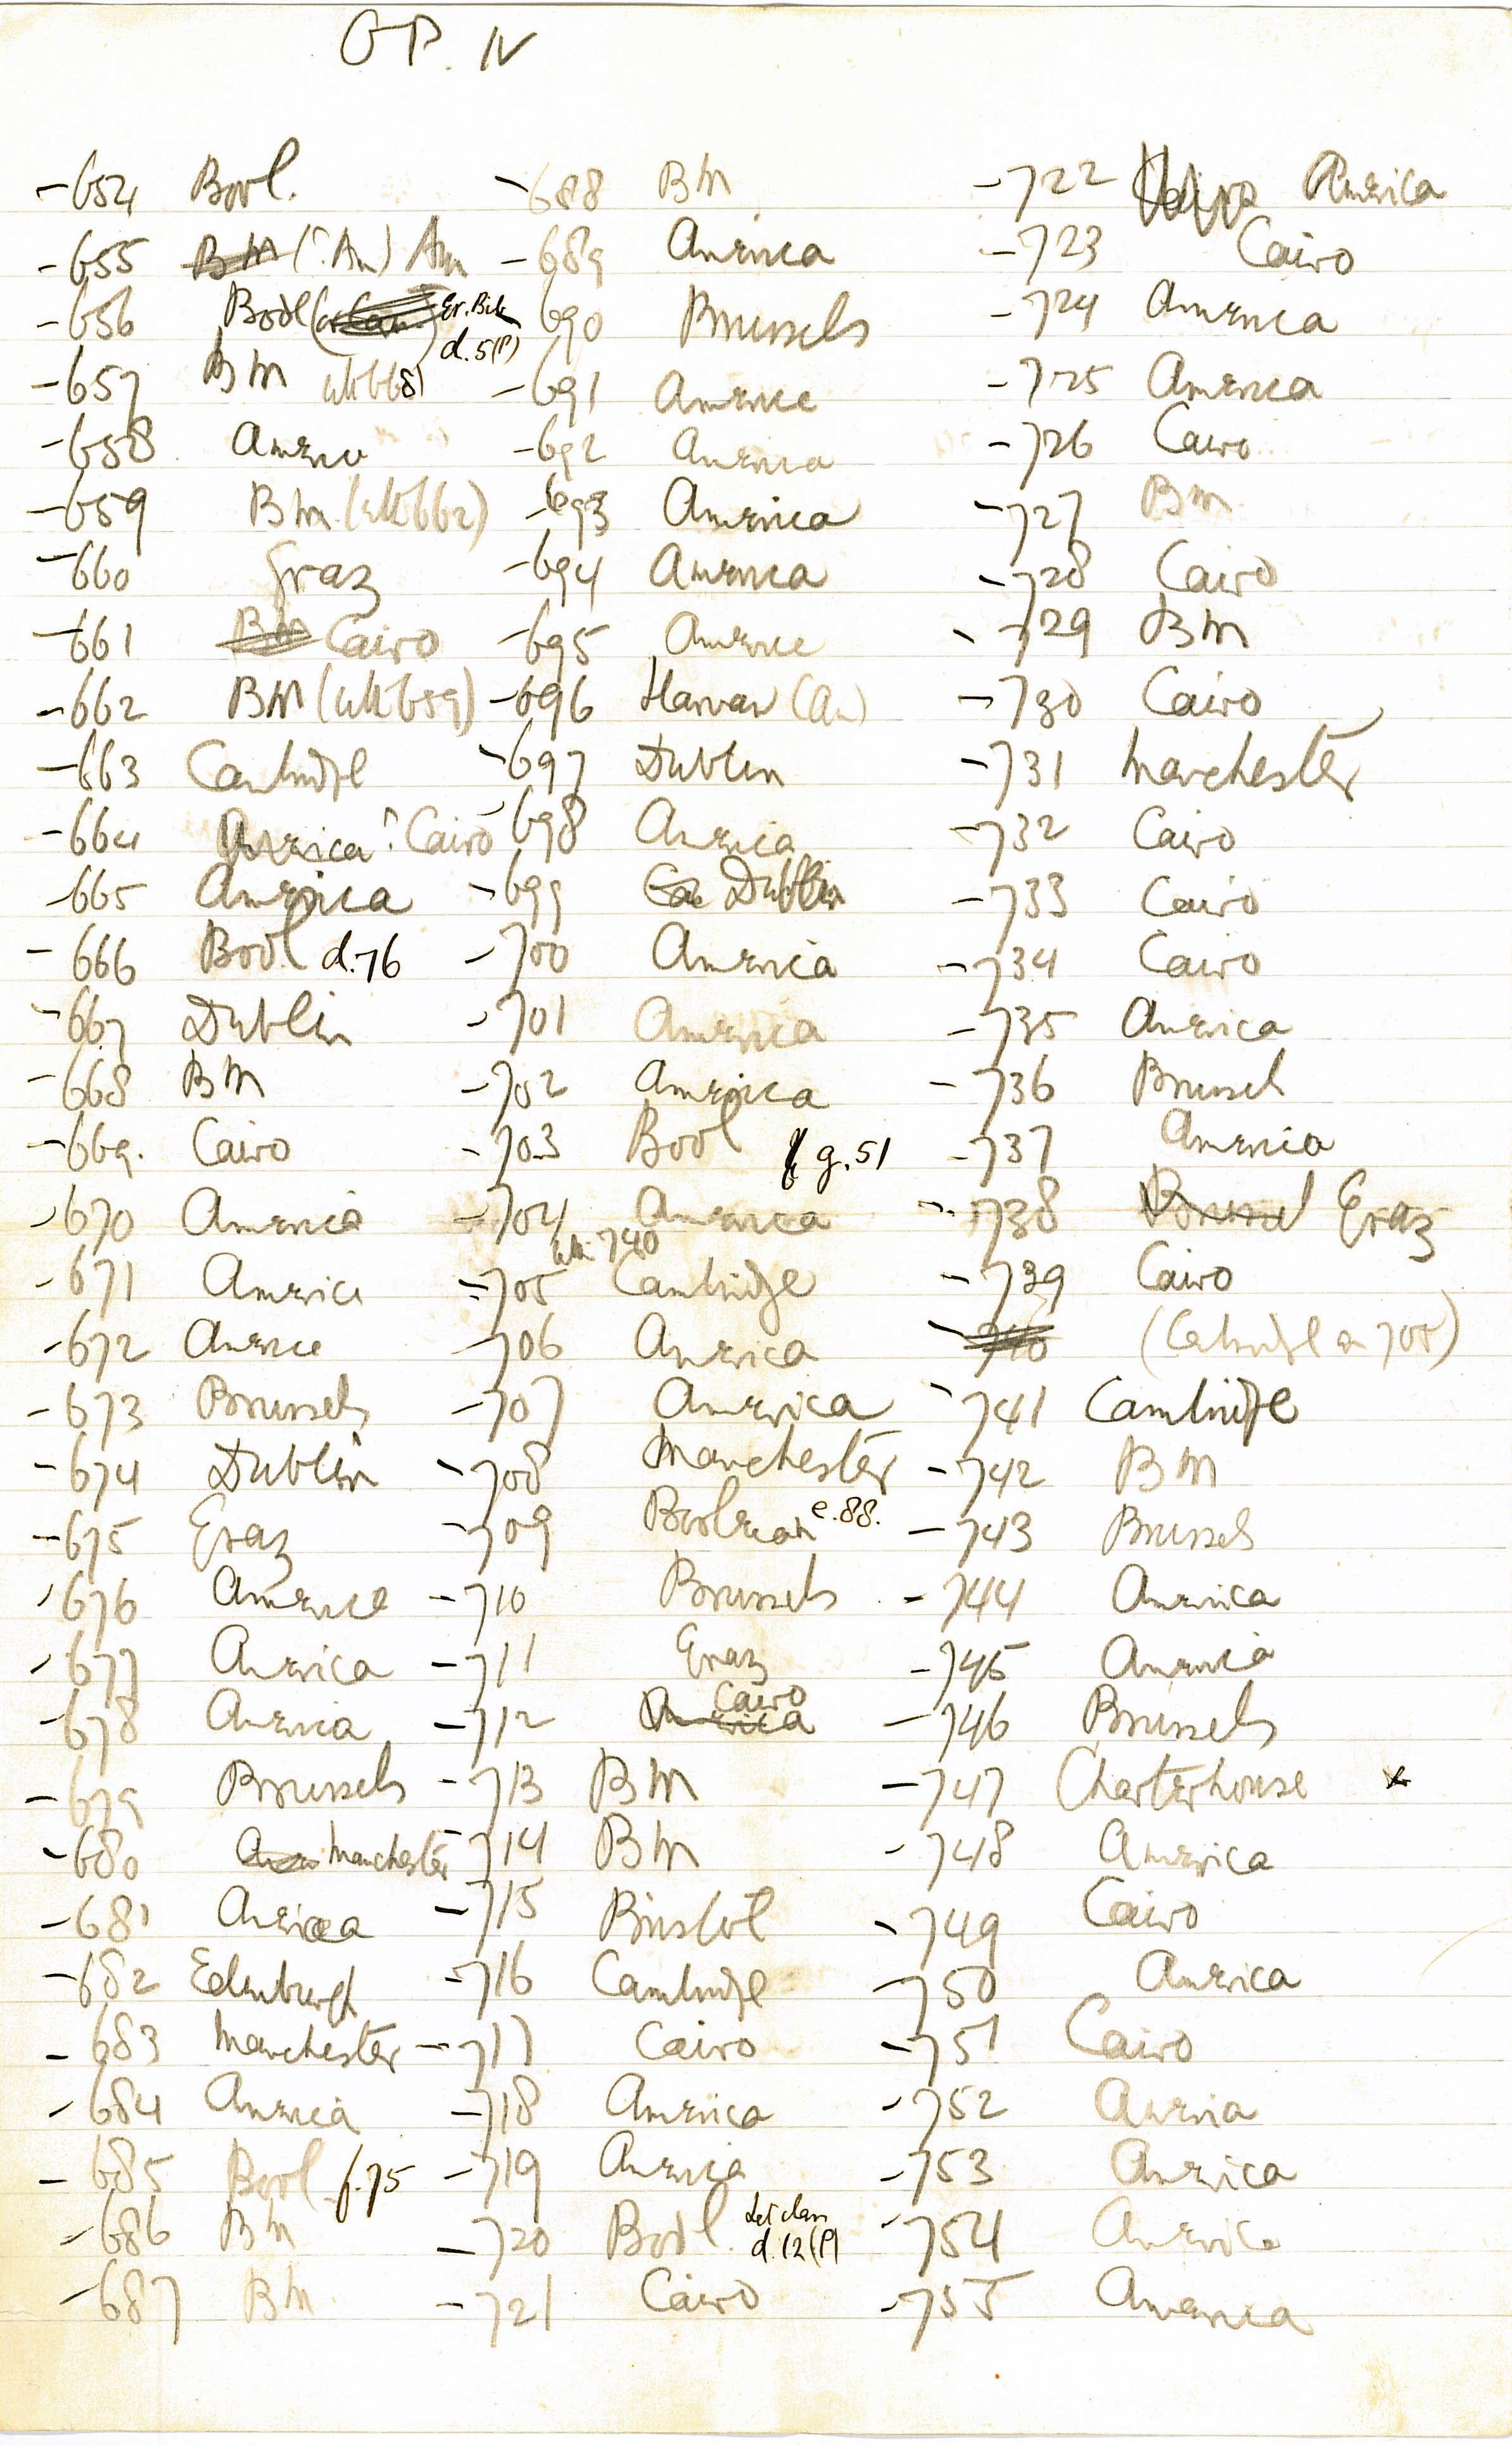 GP. IV
-654 Bodl.
-655 BM (?Am) Am
-656 Bodl Gr. Bib. d.5(P)
-657 BM
-658 Ameri
-659 BM (with 662)
-660 Graz
-661 BM Cairo
-662 BM (with 659)
-663 Cambridge
-664 America? Cairo
-665 America
-666 Bodl d.76
-667 Dublin
-668 BM
-669. Cairo
-670 America
-671 America
-672 America
-673 Brussels
-674 Dublin
-675 Graz
-676 America
-677 America
-678 America
-679 Brussels
-680 Manchester
-681 America
-682 Edinburgh
-683 Manchester
-684 America
-685 Bodl f.75
-686 BM
-687 BM
-688 BM
-689 America
-690 Brussels
-691 America
-692 America
-693 America
-694 America
-695 America
-696 Harvar (Am)
-697 Dublin
-698 America
-699 Ca Dublin
-700 America
-701 America
-702 America
-703 Bodl g.51
-704 America
with 740
-705 Cambridge
-706 America
-707 America
-708 Manchester
-709 Bodleian e.88.
-710 Brussels
-711 Graz
-712 America Cairo
-713 BM
-714 BM
-715 Bristol
-716 Cambridge
-717 Cairo
-718 America
-719 America
-720 Bodl Lat class d.12(P)
-721 Cairo
-722 America
-723 Cairo
-724 America
-725 America
-726 Cairo
-727 BM
-728 Cairo
-729 BM
-730 Cairo
-731 Manchester
-732 Cairo
-733 Cairo
-734 Cairo
-735 America
-736 Brussel
-737 America
-738 Brussel Graz
-739 Cairo
-740 (Cambridge on 705)
-741 Cambridge
-742 BM
-743 Brussels
-744 America
-745 America
-746 Brussels
-747 Charterhouse x
-748 America
-749 Cairo
-750 America
-751 Cairo
-752 America
-753 America
-754 America
-755 America